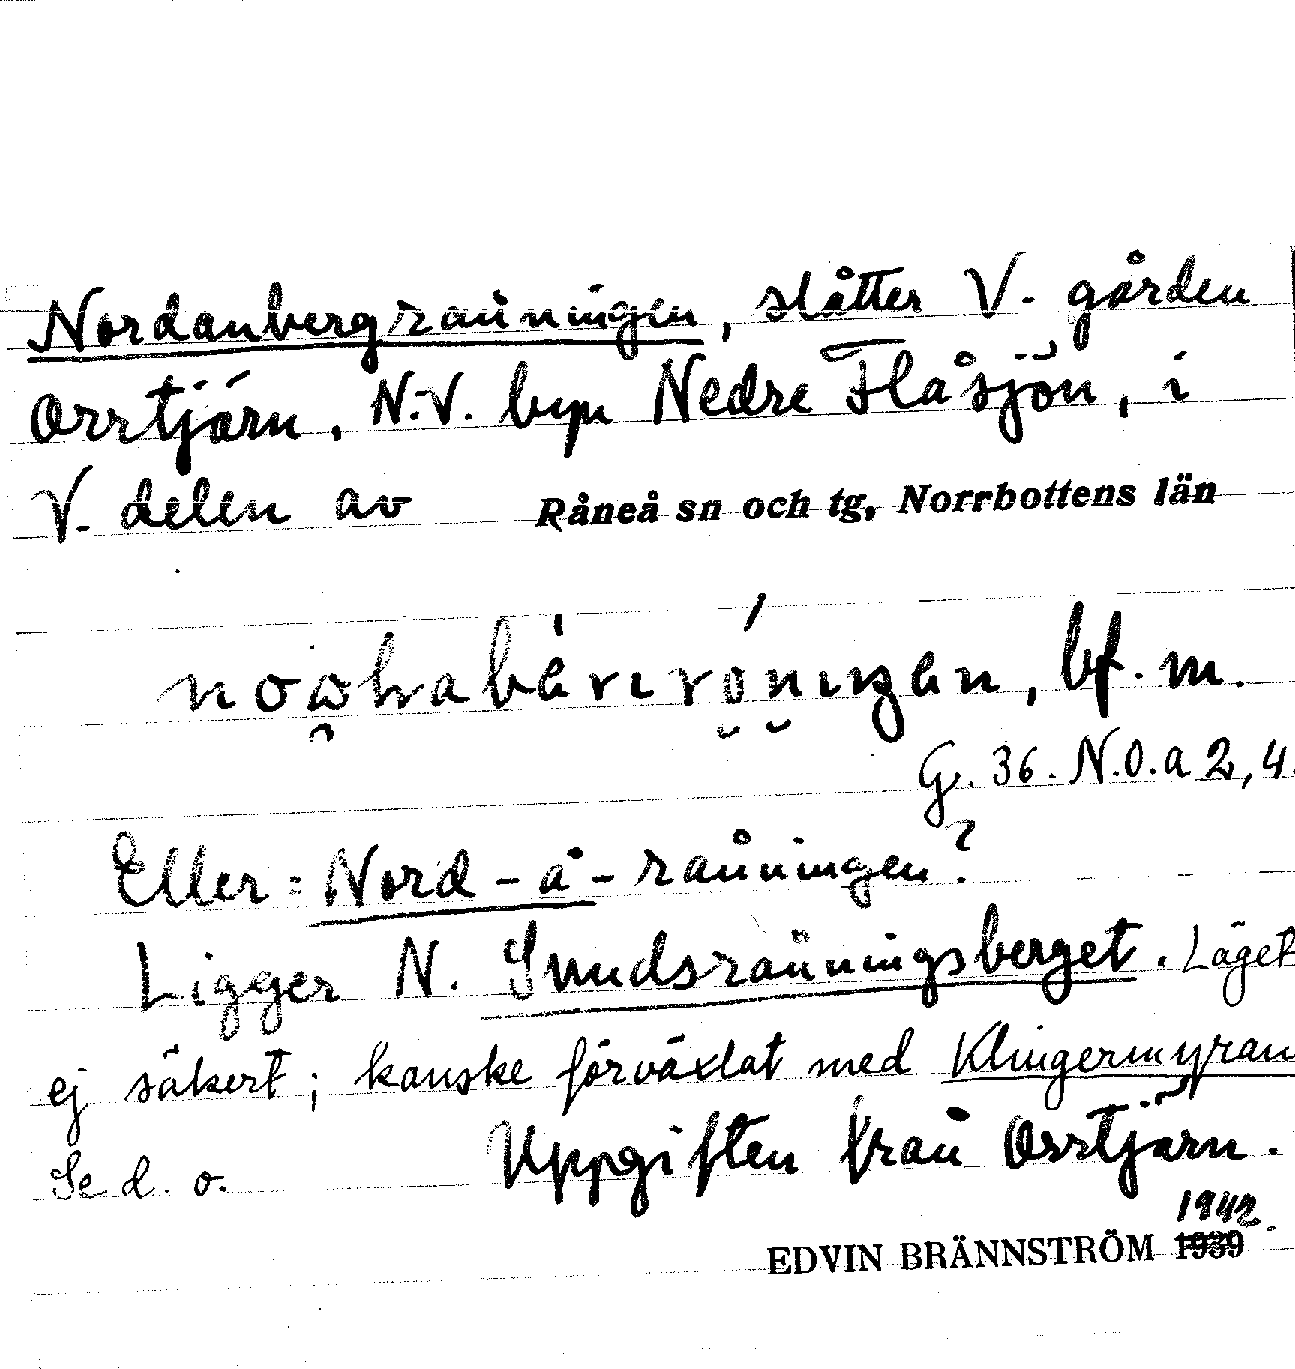 Nordanbergråningen, slåtter V. gården
Orrtjärn, N.V. byn Nedre Flåsjön, i
V. delen av Råneå sn och tg, Norrbottens län
bf. m.
G. 36. N.O.a 2,4.
Eller: Nord-å-rånningen?
Ligger N. Sundsrånningsberget. Läget
ej säkert; kanske förväxlat med Klingermyran
Se d. o. Uppgiften från Orrtjärn.
1942.
EDVIN BRÄNNSTRÖM 1939